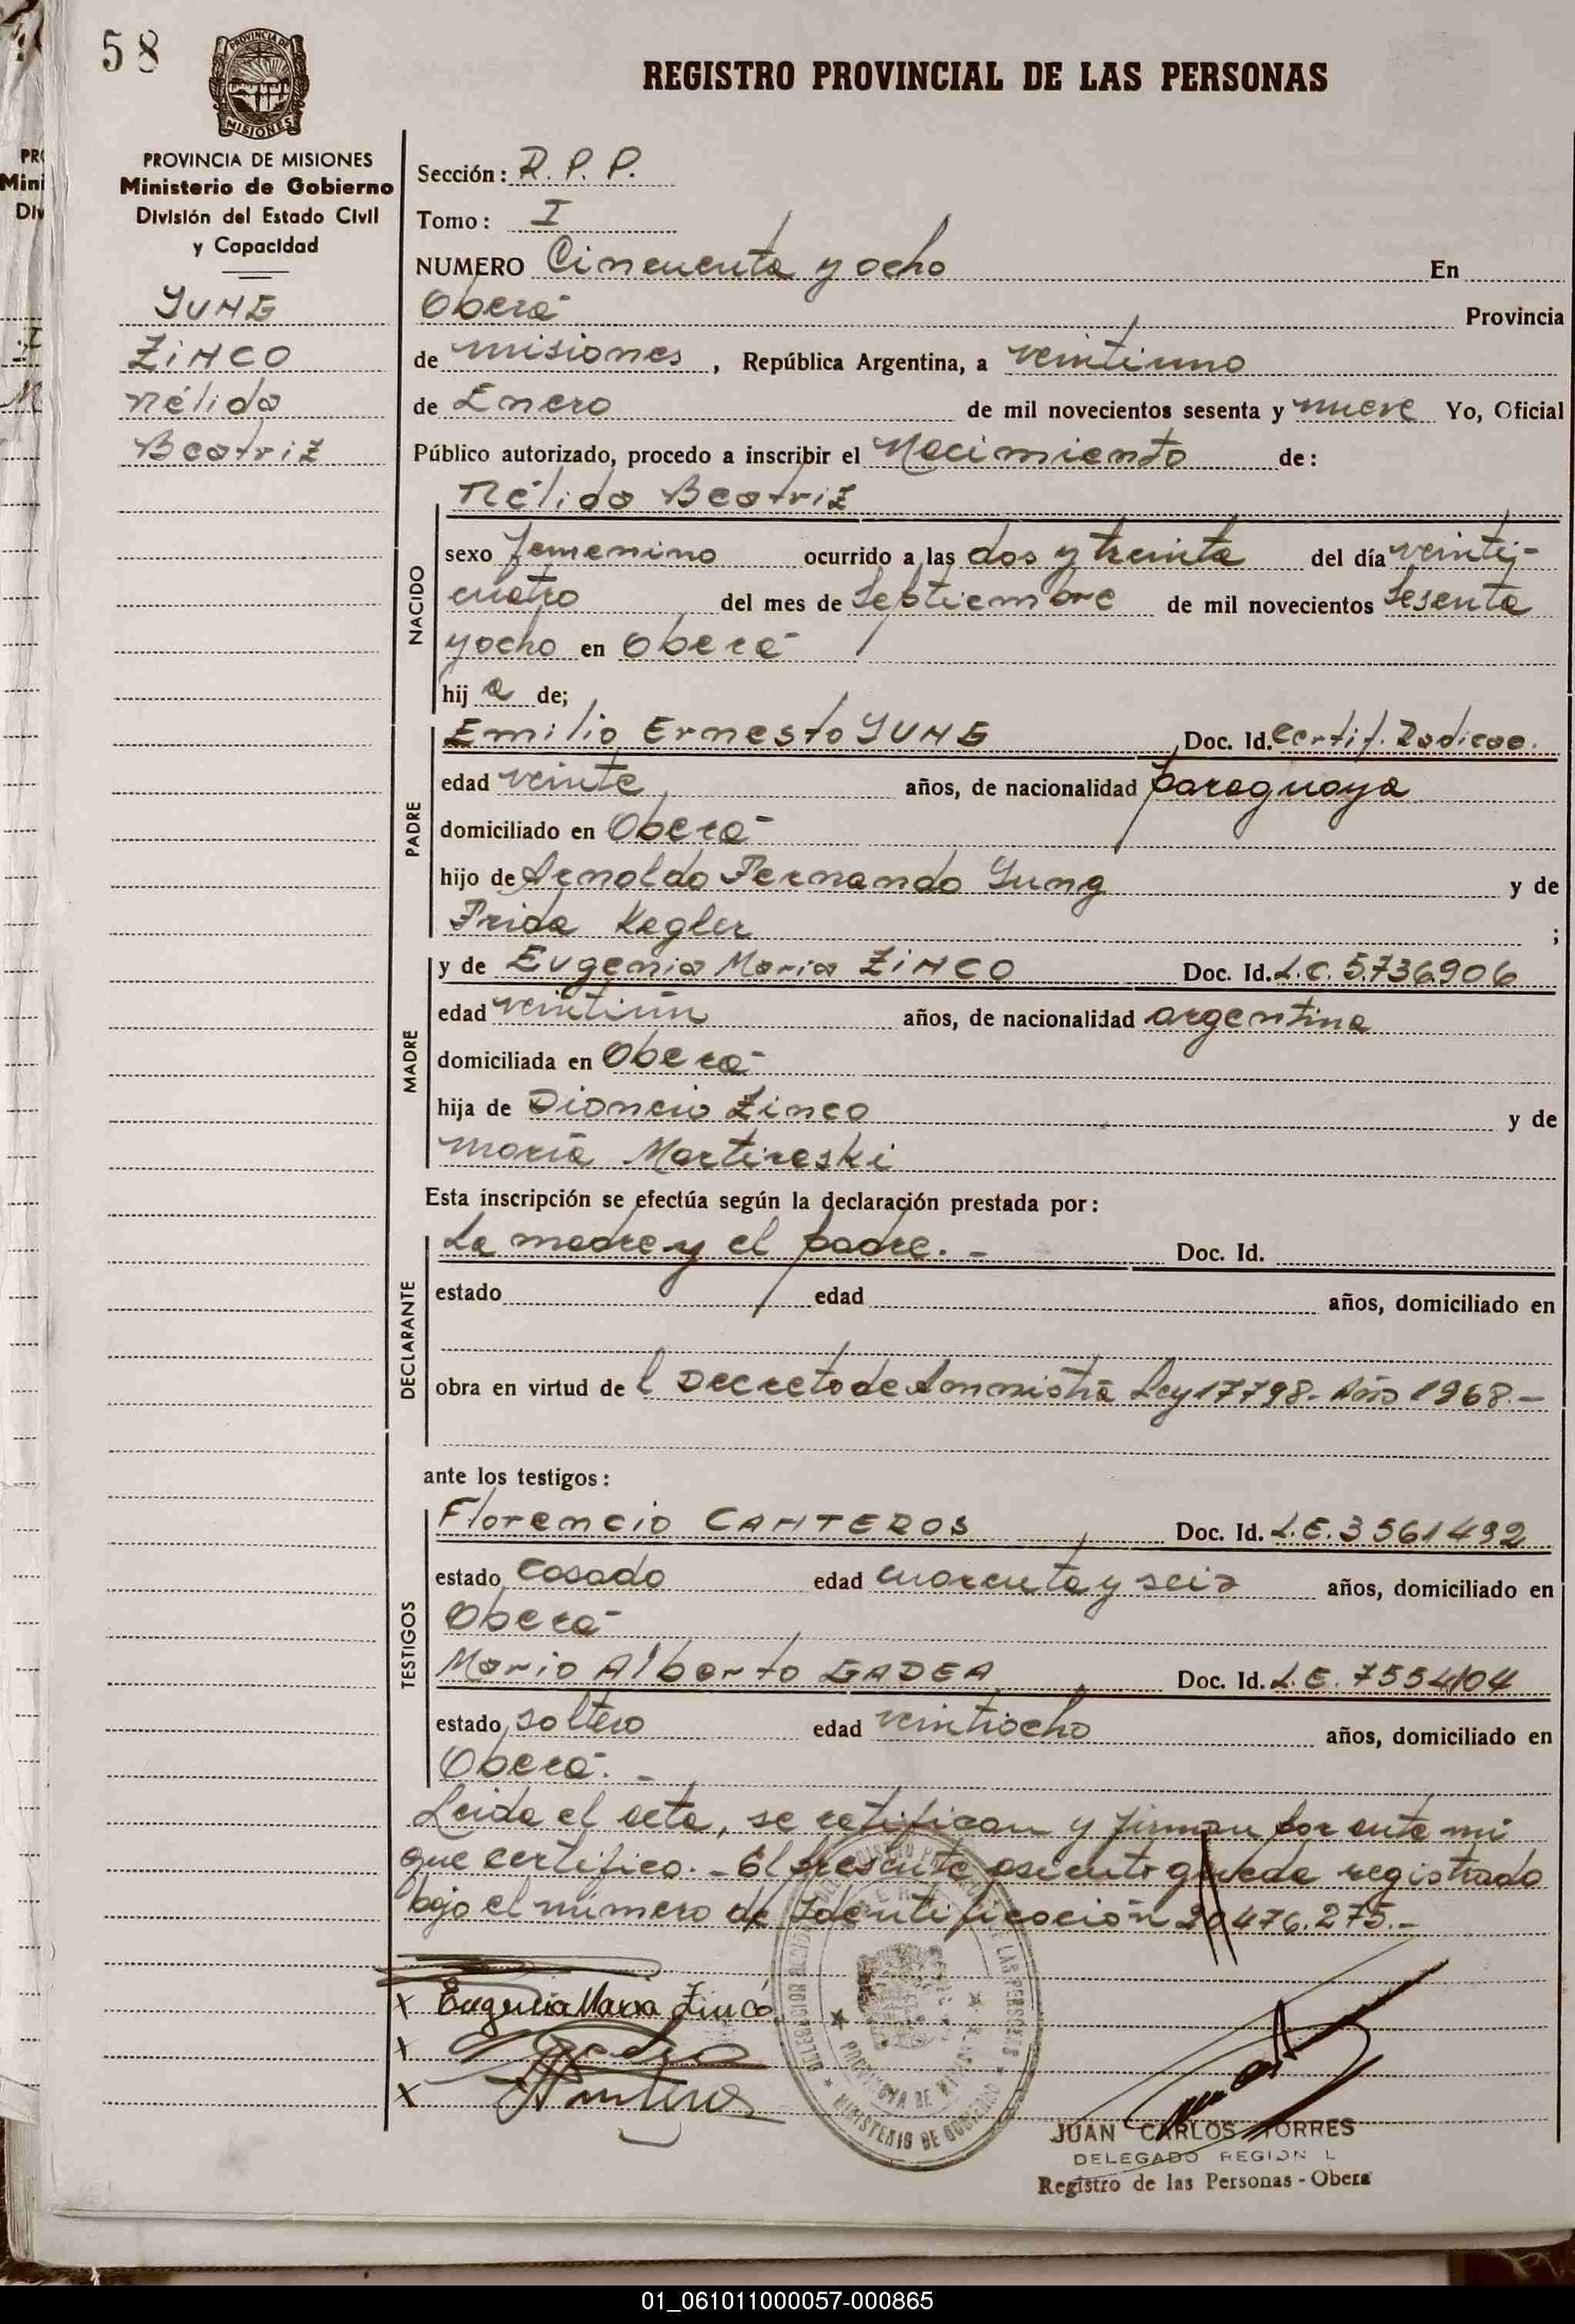 58
PROVINCIA DE
MISIONES
REGISTRO PROVINCIAL DE LAS PERSONAS
PROVINCIA DE MISIONES
Ministerio de Gobierno
División del Estado Civil
y Capacidad
YUNG
ZINCO
Nélida
Beatriz
Sección: R. P. P.
Tomo: I
NUMERO Cincuenta y ocho En
Oberá Provincia
de Misiones, República Argentina, a veintiuno
de Enero de mil novecientos sesenta y nueve Yo, Oficial
Público autorizado, procedo a inscribir el Nacimiento de:
Nélida Beatriz
NACIDO
sexo femenino ocurrido a las dos y treinta del día veinti-
cuatro del mes de Septiembre de mil novecientos sesenta
y ocho en Oberá
hija de;
PADRE
Emilio Ernesto YUNG Doc. Id. Certif. Radicac.
edad veinte años, de nacionalidad paraguaya
domiciliado en Oberá
hijo de Arnoldo Fernando Yung y de
Frida Kegler ;
MADRE
y de Eugenia Maria ZINCO Doc. Id. L.C. 5.736.906
edad veintiún años, de nacionalidad argentina
domiciliada en Oberá
hija de Dioncio Zinco y de
María Martireski
Esta inscripción se efectúa según la declaración prestada por:
DECLARANTE
La madre y el padre.- Doc. Id.
estado edad años, domiciliado en
obra en virtud del Decreto de Amnistía Ley 17798- Año 1968.-
ante los testigos:
TESTIGOS
Florencio CANTEROS Doc. Id. L.E. 3561492
estado casado edad cuarenta y seis años, domiciliado en
Oberá
Mario Alberto GADEA Doc. Id. L.E. 7554104
estado soltero edad veintiocho años, domiciliado en
Oberá.-
Leida el acta, se ratifican y firman por ante mi
que certifico.- El presente asiento queda registrado
bajo el número de Identificación 20.476.275.-
x Eugenia Maria Zinco
x
x
PROVINCIA DE MISIONES
MINISTERIO DE GOBIERNO
JUAN CARLOS TORRES
DELEGADO REGION L
Registro de las Personas - Obera
PR
Mini
Div
01_061011000057-000865